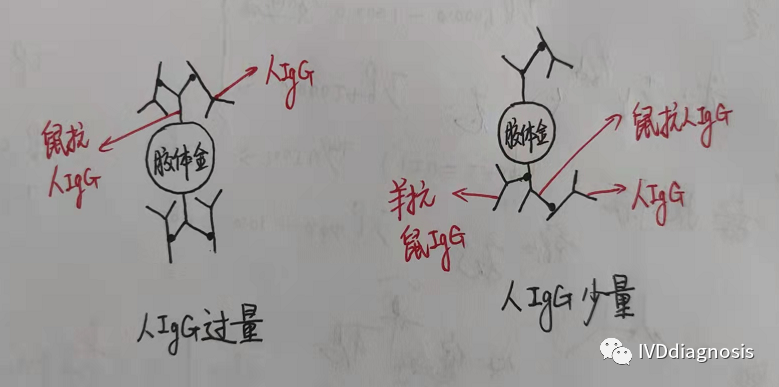 人IgG
鼠抗
人IgG
胶体金
人IgG过量
胶体金
鼠抗人IgG
羊抗
鼠IgG
人IgG
人IgG少量
IVDdiagnosis